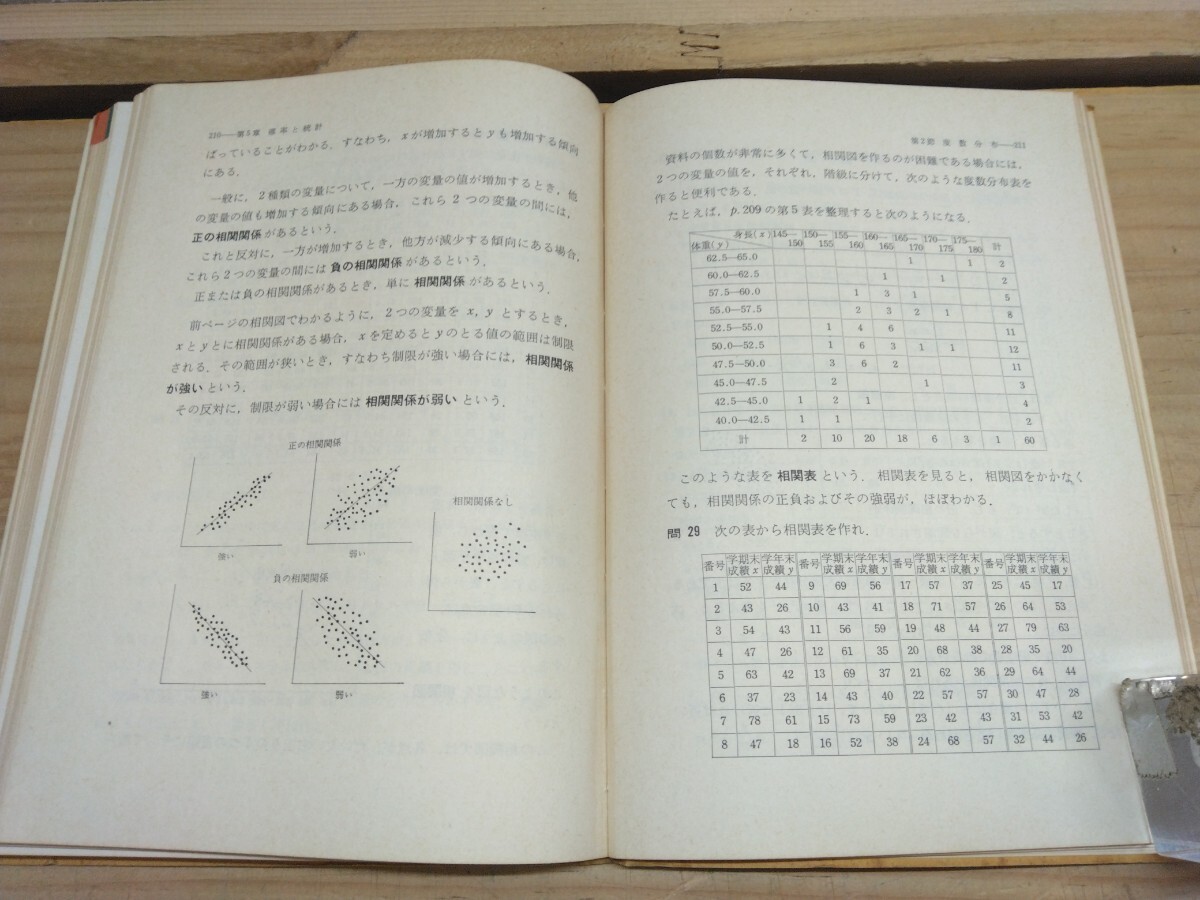 210——第5章 確率と統計
ばっていることがわかる．すなわち，xが増加するとyも増加する傾向
にある．
一般に，2種類の変量について，一方の変量の値が増加するとき，他
の変量の値も増加する傾向にある場合，これら2つの変量の間には，
正の相関関係があるという．
これと反対に，一方が増加するとき，他方が減少する傾向にある場合，
これら2つの変量の間には負の相関関係があるという．
正または負の相関関係があるとき，単に相関関係があるという．
前ページの相関図でわかるように，2つの変量をx，yとするとき，
xとyとに相関関係がある場合，xを定めるとyのとる値の範囲は制限
される．その範囲が狭いとき，すなわち制限が強い場合には，相関関係
が強いという．
その反対に，制限が弱い場合には相関関係が弱いという．
正の相関関係
強い
弱い
相関関係なし
負の相関関係
強い
弱い
第2節 変数分布——211
資料の個数が非常に多くて，相関図を作るのが困難である場合には，
2つの変量の値を，それぞれ，階級に分けて，次のような度数分布表を
作ると便利である．
たとえば，p.209の第5表を整理すると次のようになる．
身長(x) 145— 150— 155— 160— 165— 170— 175— 計
体重(y) 150 155 160 165 170 175 180
62.5—65.0 1 1 2
60.0—62.5 1 1 2
57.5—60.0 1 3 1 5
55.0—57.5 2 3 2 1 8
52.5—55.0 1 4 6 11
50.0—52.5 1 6 3 1 1 12
47.5—50.0 3 6 2 11
45.0—47.5 2 1 3
42.5—45.0 1 2 1 4
40.0—42.5 1 1 2
計 2 10 20 18 6 3 1 60
このような表を相関表という．相関表を見ると，相関図をかかなく
ても，相関関係の正負およびその強弱が，ほぼわかる．
問 29 次の表から相関表を作れ．
番号 学期末成績x 学年末成績y 番号 学期末成績x 学年末成績y 番号 学期末成績x 学年末成績y 番号 学期末成績x 学年末成績y
1 52 44 9 69 56 17 57 37 25 45 17
2 43 26 10 43 41 18 71 57 26 64 53
3 54 43 11 56 59 19 48 44 27 79 63
4 47 26 12 61 35 20 68 38 28 35 20
5 63 42 13 69 37 21 62 36 29 64 44
6 37 23 14 43 40 22 57 57 30 47 28
7 78 61 15 73 59 23 42 43 31 53 42
8 47 18 16 52 38 24 68 57 32 44 26